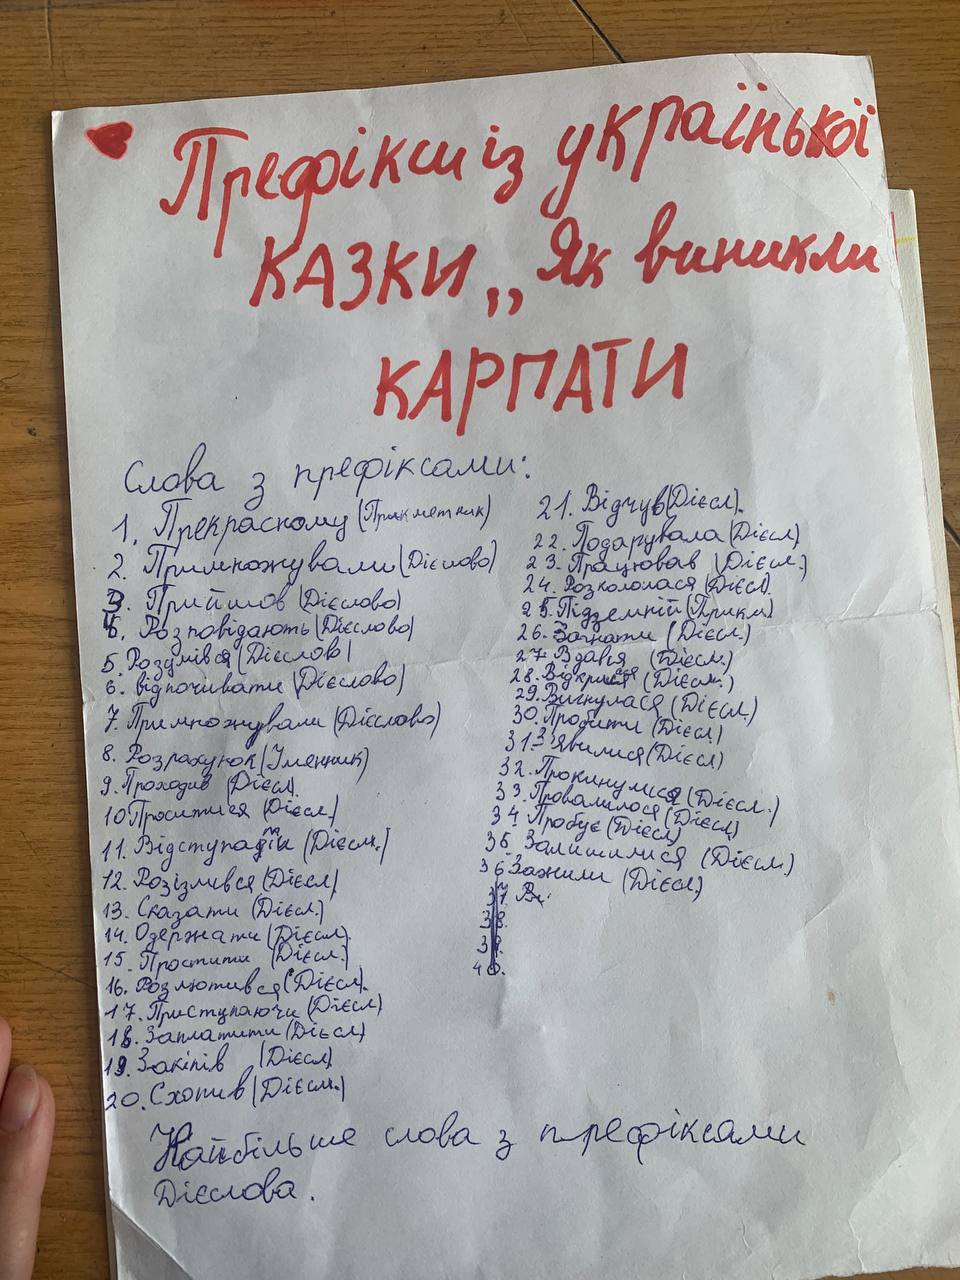 Префікси із україіської
КАЗКИ ,, Як виникли
КАРПАТИ
Слова з префіксами:
1. Прекрасному (Прикметник)
2. Примножували (Дієслово)
3. Прийшов (Дієслово)
4. Розповідають (Дієслово)
5. Роздмівся (Дієслово)
6. відпочивати (Дієслово)
7. Примножували (Дієслово)
8. Розрахунок (Іменник)
9. Проходив (Дієсл.)
10 Проситися (Дієсл.)
11. Відступати (Дієсл.)
12. Розізлився (Дієсл)
13. Сказати (Дієсл.)
14. Одержати (Дієсл.)
15. Простити (Дієсл.)
16. Розлютився (Дієсл).
17. Приступаючи (Дієсл)
18. Заплатити (Дієсл)
19. Закіпів (Дієсл)
20. Схопив (Дієсл.)
21. Відчув (Дієсл).
22. Подарувала (Дієсл)
23. Працював (Дієсл.)
24. Розкололася (Дієсл).
25. Підземній (Прикм)
26. Загнати (Дієсл.)
27. Вдався (Дієсл.)
28. Відкрився (Дієсл.)
29. Вигнулася (Дієсл.)
30. Пробити (Дієсл)
31. З'явилися (Дієсл)
32. Прокинулися (Дієсл.)
33. Провалилося (Дієсл)
34 Пробує (Дієсл)
35 Залишилися (Дієсл.)
36 Зажили (Дієсл.)
37. Ве
38.
39.
40.
Найбільше слова з префіксами
Дієслова.